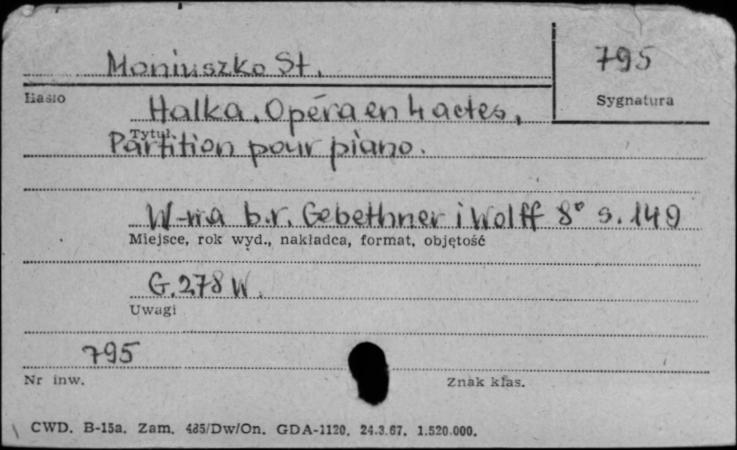 Moniuszko St.
795
Hasło
Sygnatura
Halka. Opéra en 4 actes,
Tytuł
Partition pour piano.
W-wa b.r. Gebethner i Wolff 8° s. 149
Miejsce, rok wyd., nakładca, format, objętość
G. 278 W.
Uwagi
795
Nr inw.
Znak klas.
CWD. B-15a. Zam. 485/Dw/On. GDA-1120. 24.3.67. 1.520.000.